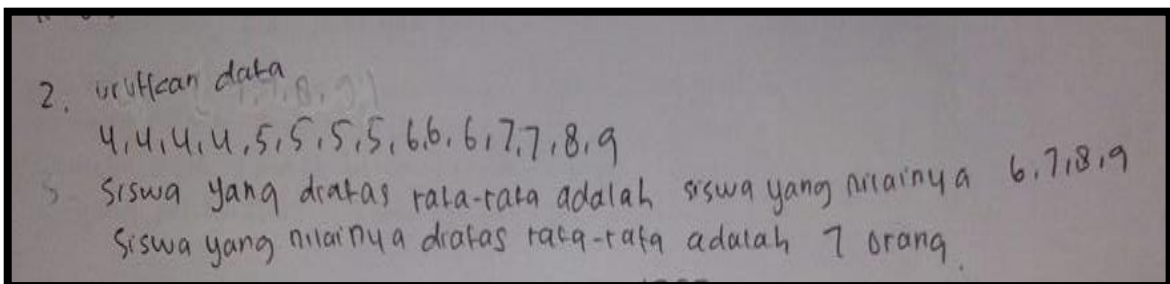 2. urutkan data
4,4,4,4,5,5,5,5,6,6,6,7,7,8,9
Siswa yang diatas rata-rata adalah siswa yang nilainya 6,7,8,9
Siswa yang nilainya diatas rata-rata adalah 7 orang.